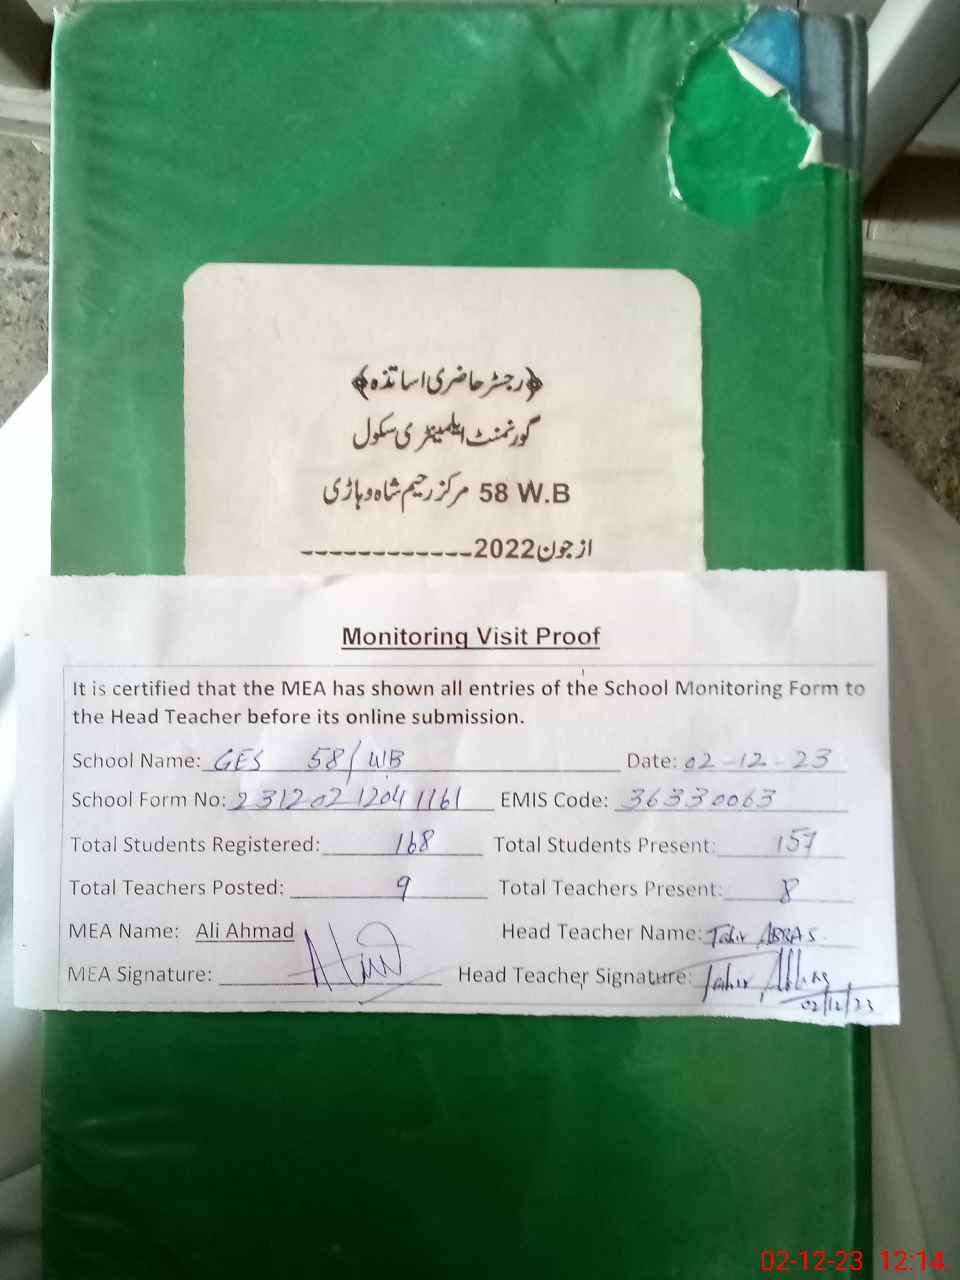 ﴿رجسٹر حاضری اساتذہ﴾
گورنمنٹ ایلیمنٹری سکول
58 W.B مرکز رحیم شاہ وہاڑی
از جون2022------------
Monitoring Visit Proof
It is certified that the MEA has shown all entries of the School Monitoring Form to
the Head Teacher before its online submission.
School Name: GES 58/WB Date: 02-12-23
School Form No: 23120212041161 EMIS Code: 36330063
Total Students Registered: 168 Total Students Present: 157
Total Teachers Posted: 9 Total Teachers Present: 8
MEA Name: Ali Ahmad Head Teacher Name: Tahir ABBAS.
MEA Signature: Head Teacher Signature: Tahir Abbas
02/12/23
02-12-23 12:14